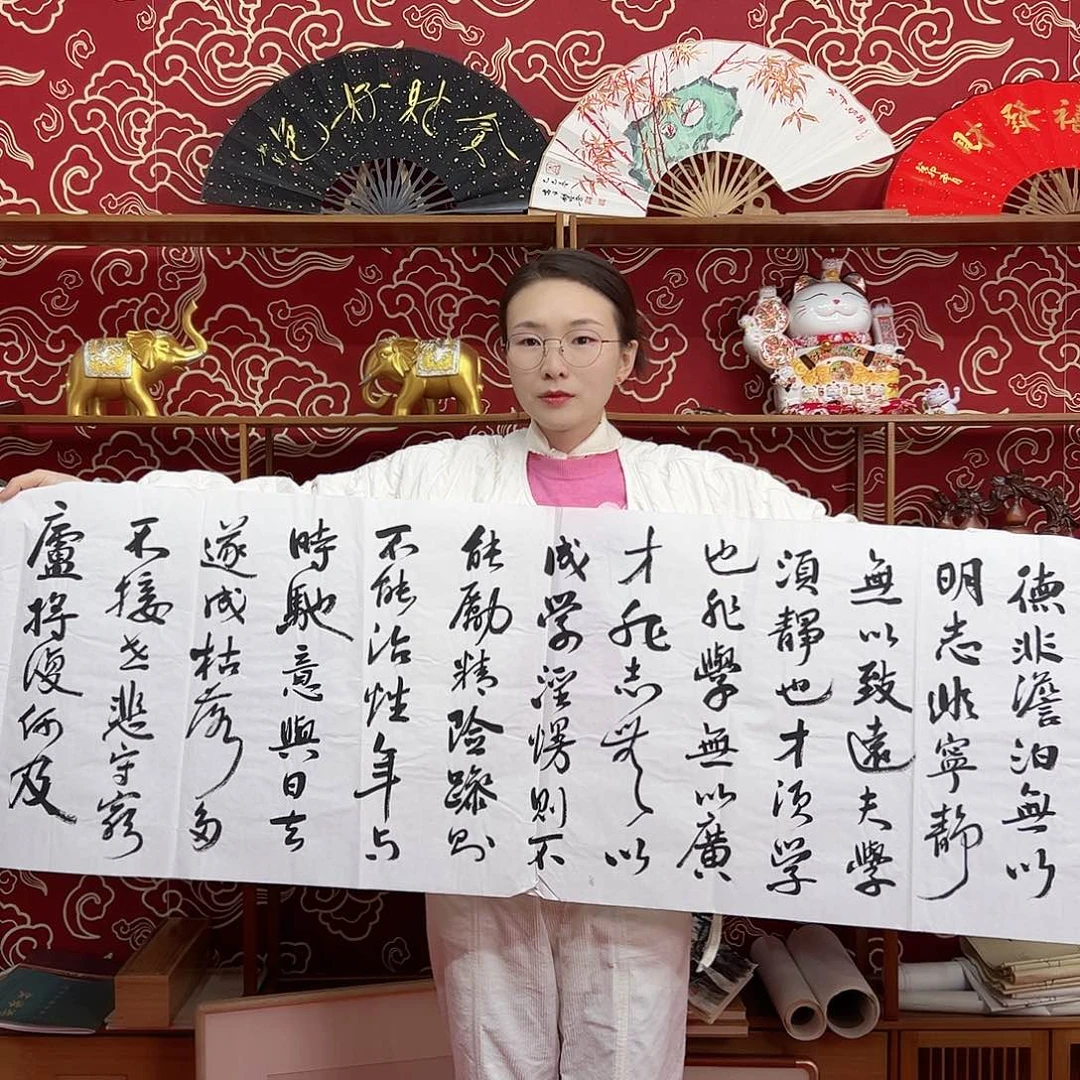 貪财好色
發財
德非澹泊無以
明志非寧靜
無以致遠夫學
須靜也才須学
也非學無以廣
才非志無以
成学淫慢則不
能勵精險躁則
不能治性年与
時馳意與日去
遂成枯落多
不接世悲守窮
廬将復何及